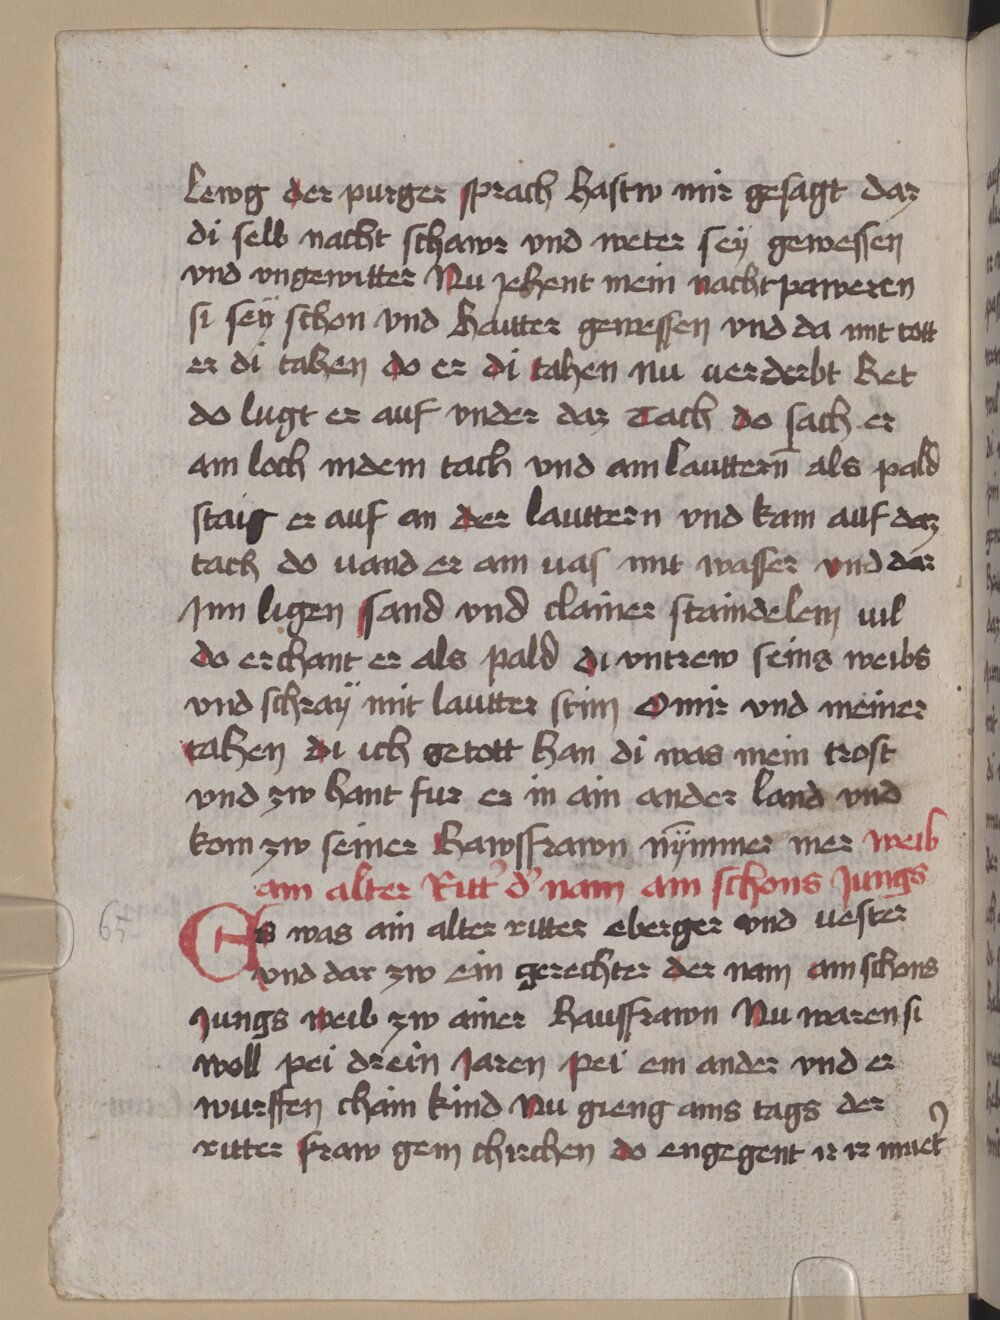 lewg der purger sprach hastw mir gesagt daz
di selb nacht schawr vnd weter sey gewessen
vnd vngewitter Nu jehent mein nachtpaweren
si sey schon vnd hautter gewessen vnd da mit tott
er di tahen do er di tahen nu verderbt het
do lugt er auf vnder daz Tach do sach er
ain loch in dem tach vnd ain lauttern als pald
staig er auf an der lauttern vnd kam auf daz
tach do vand er ain vas mit wasser vnd dar
Jnn ligen sand vnd clainer staindelein vil
do erchant er als pald di vntrew seins weibs
vnd schray mit lautter stim O mir vnd meiner
tahen di ich getott han di was mein trost
vnd zw hant fur er in ain ander land vnd
kom zw seiner hawsfrawn nymmer mer weib
ain alter Ritt' d' nam ain schons Jungs
Es was ain alter ritter eberger vnd vester
vnd dar zw ein gerechter der nam ain schons
Jungs weib zw ainer hausfrawn Nu waren si
woll pei drein Jaren pei ein ander vnd er
wurffen chain kind Nu gieng ains tags der
ritter fraw gein chirchen do engegent ir ir muet'
65